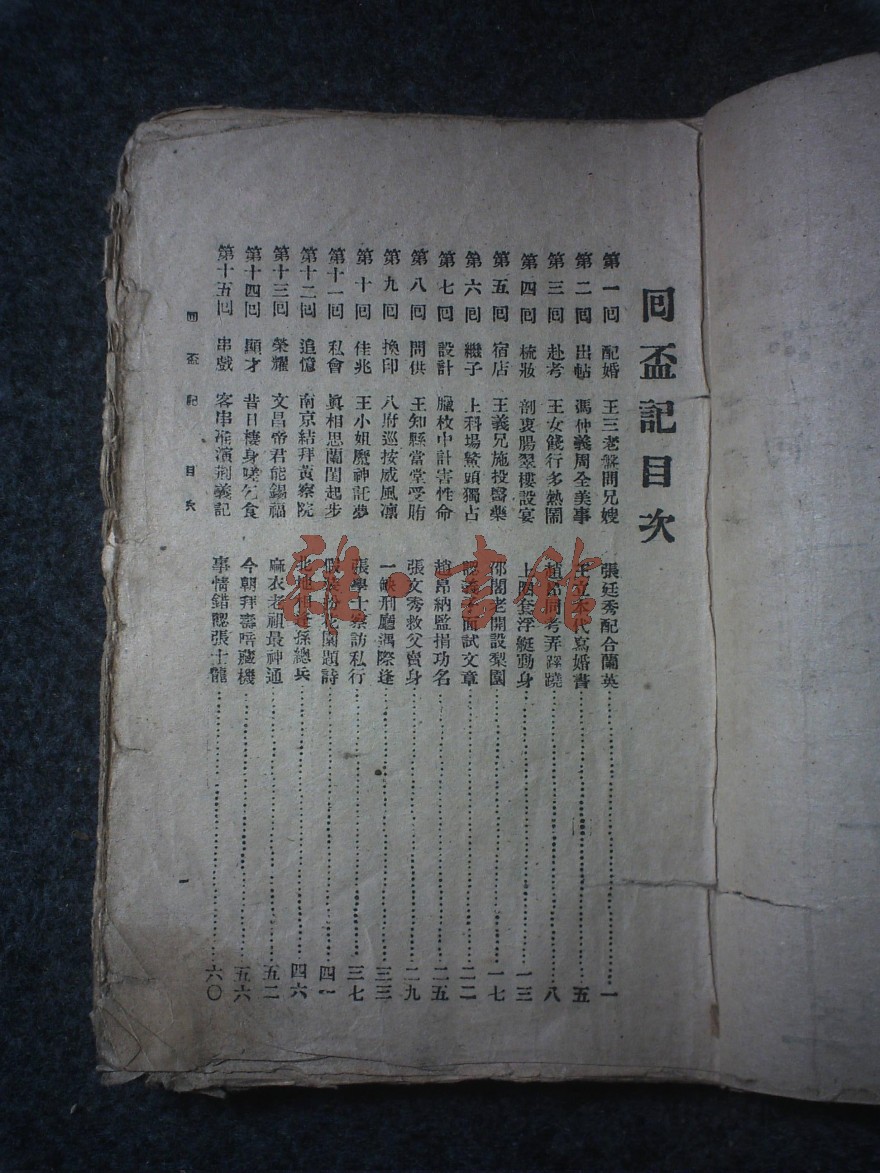 回盃記目次
第一回 配婚 王三老盤問兄嫂 張廷秀配合蘭英 一
第二回 出帖 馮仲義周全美事 王立本代寫婚書 五
第三回 赴考 王女餞行多熱鬧 趙昂同考弄蹊蹺 八
第四回 梳妝 剖衷腸翠樓設宴 上 套浮艇動身 一三
第五回 宿店 王義兄施投醫藥 邵閣老開設梨園 一七
第六回 繼子 上科場鰲頭獨占 認義子面試文章 二二
第七回 設計 臟枚中計害性命 趙昂納監捐功名 二五
第八回 問供 王知縣當堂受賄 張文秀救父賣身 二九
第九回 換印 八府巡按威風凛 一 刑廳遇際逢 三三
第十回 佳兆 王小姐魘神託夢 張學士察訪私行 三七
第十一回 私會 眞相思蘭閨起步 假裝 花園題詩 四一
第十二回 追憶 南京結拜黃察院 北地相逢孫總兵 四六
第十三回 榮耀 文昌帝君能錫福 麻衣老祖最神通 五二
第十四回 顯才 昔日棲身嗟乞食 今朝拜壽暗藏機 五六
第十五回 串戲 客串演荆義記 事情錯認張士龍 六〇
回盃記 目次 一
雅·書館